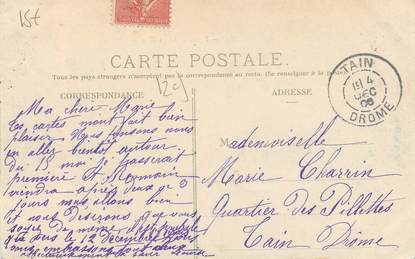 15t
CARTE POSTALE.
Tous les pays étrangers n'acceptent pas la correspondance au recto. (Se renseigner à la poste).
CORRESPONDANCE
ADRESSE
TAIN
4
DEC
DROME
Ma cheri Marie
Les cartes mont fait bien
plaisir Nous pensons nous
en allez bientôt autour
du 15 moi je passerai
première et Germain
viendra après deux ou 3
jours nous allons bien
et nous desirons que vous
soyez de meme
12 Decembre
vous embrassons tout deux
Mademoiselle
Marie Charrin
Quartier des Fillettes
Tain Drôme